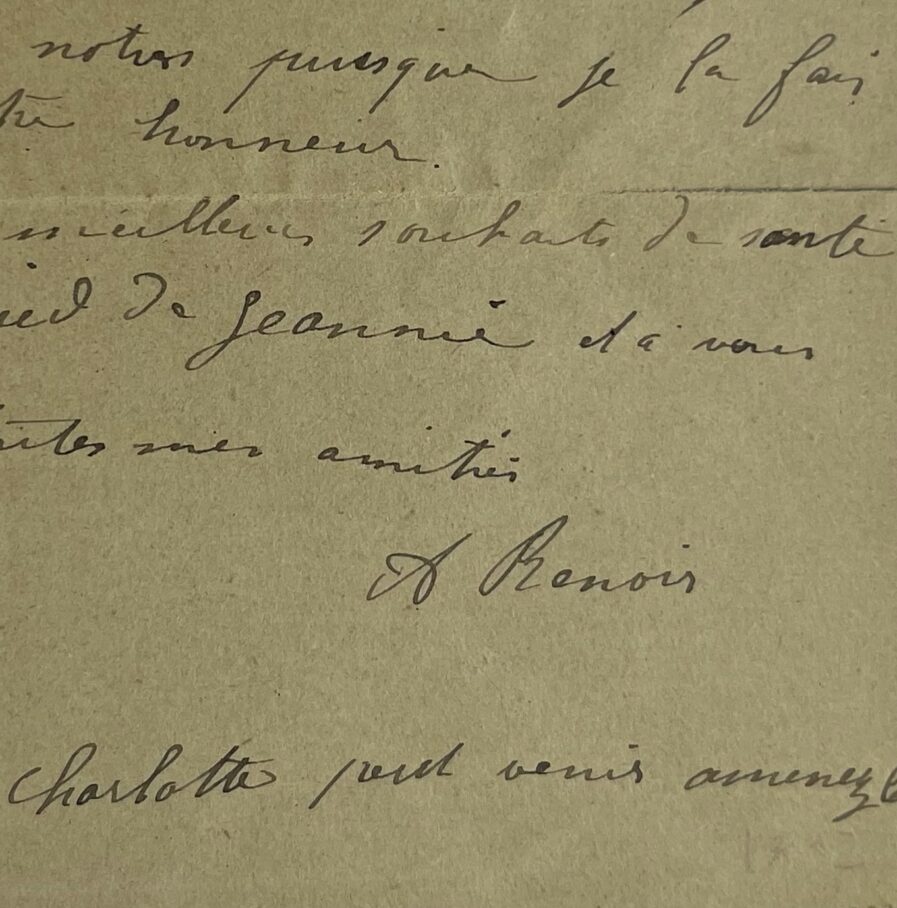 notres puisque je la fais
tre honneur.
meilleurs souhaits de santé
ied de Jeannie et à vous
utes mes amitiés
A Renoir
Charlotte peut venir amenez l